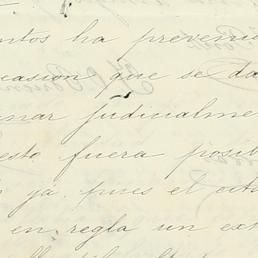 ntos ha prevenid
ocasion que se da
nar judicialme
esto fuera posib
ya pues el
en regla un ex